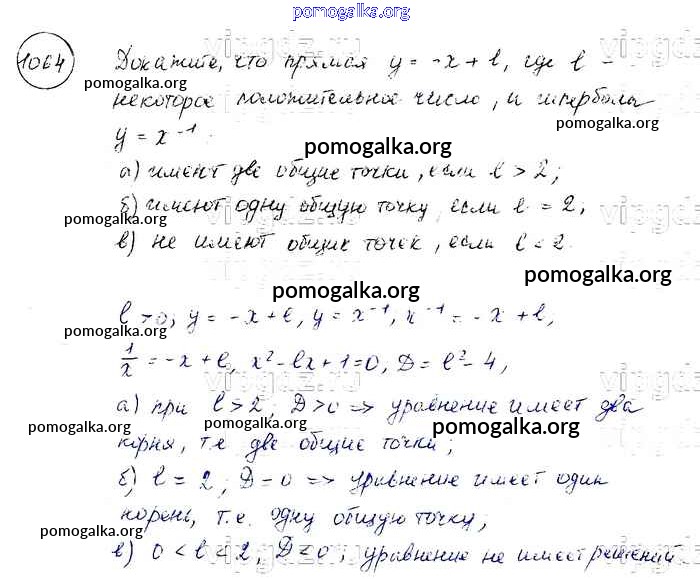 pomogalka.org
1064 Докажите, что прямая y = -x + l, где l -
pomogalka.org
некоторое положительное число, и гиперболы
pomogalka.org
y = x⁻¹.
pomogalka.org
а) имеют две общие точки, если l > 2;
б) имеют одну общую точку, если l = 2,
pomogalka.org
в) не имеют общих точек, если l < 2.
pomogalka.org
pomogalka.org
l > 0, y = -x + l, y = x⁻¹, x⁻¹ = -x + l,
pomogalka.org
1/x = -x + l, x² - lx + 1 = 0, D = l² - 4,
а) при l > 2, D > 0 => уравнение имеет два
pomogalka.org pomogalka.org pomogalka.org
корня, т.е две общие точки;
б) l = 2, D = 0 => уравнение имеет один
корень, т.е. одну общую точку;
pomogalka.org
в) 0 < l < 2, D < 0; уравнение не имеет решений
vipgdz